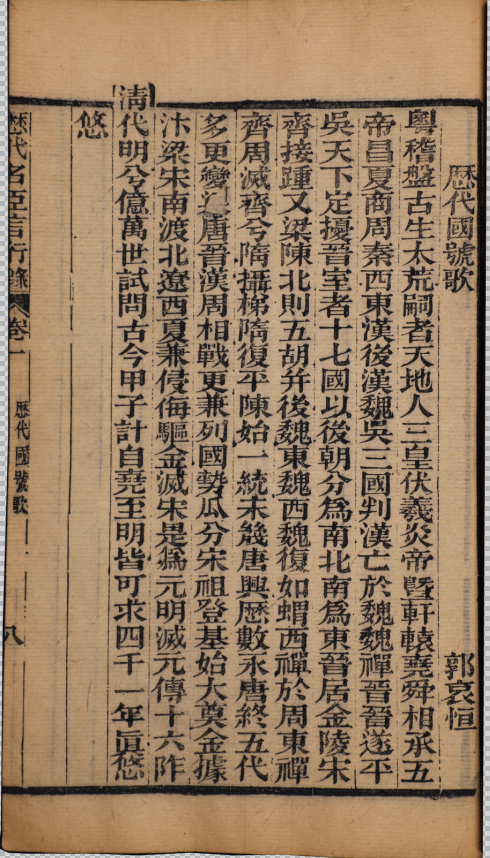 歷代國號歌 郭哀恒
粵稽盤古生太荒嗣者天地人三皇伏羲炎帝曁軒轅堯舜相承五
帝昌夏商周秦西東漢後漢魏吳三國判漢亡於魏魏禪晉晉遂平
吳天下定擾晉室者十七國以後朝分爲南北南爲東晉居金陵宋
齊接踵又梁陳北則五胡并後魏東魏西魏復如蝟西禪於周東禪
齊周滅齊兮隋攝梯隋復平陳始一統未幾唐興歷數永唐終五代
多更變梁唐晉漢周相戰更兼列國勢瓜分宋祖登基始大奠金據
汴梁宋南渡北遼西夏兼侵侮驅金滅宋是爲元明滅元傳十六阼
淸代明兮億萬世試問古今甲子計自堯至明皆可求四千一年眞悠
悠
歷代名臣言行錄 卷一 歷代國號歌 八